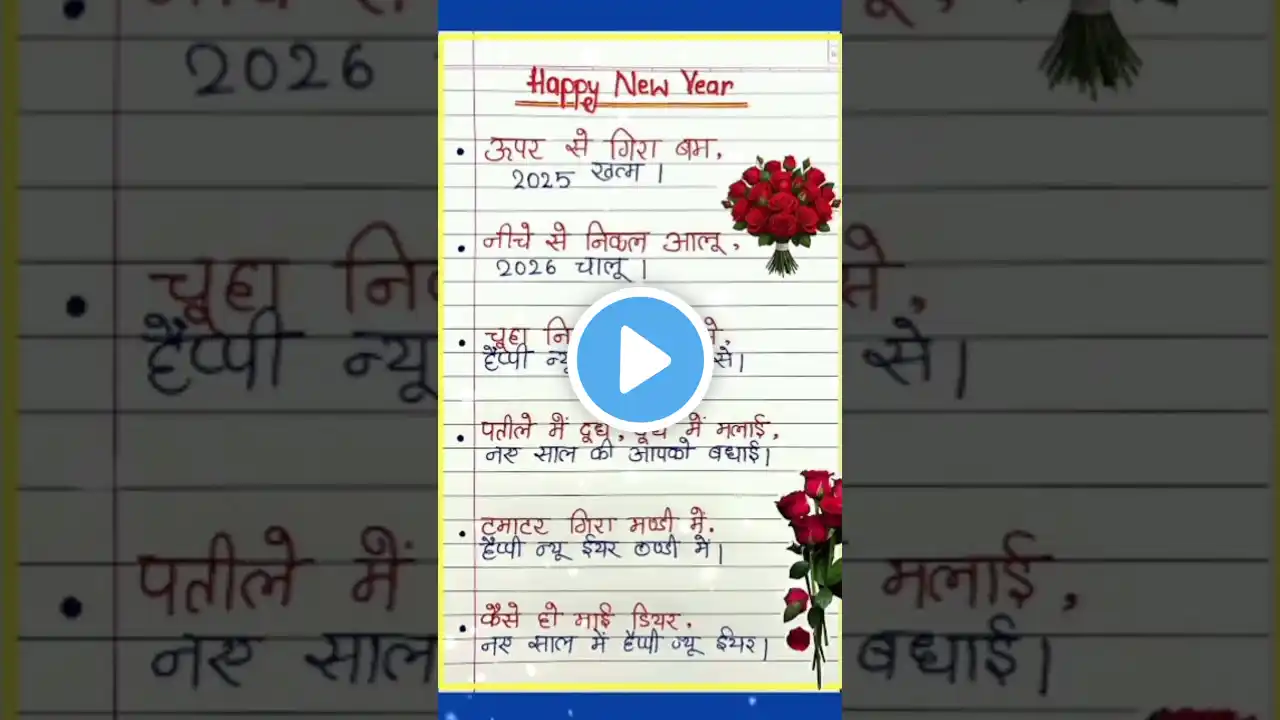 Happy New Year
• ऊपर से गिरा बम,
2025 खत्म ।
• नीचे से निकल आलू,
2026 चालू ।
• चूहा
हैप्पी से।
• पतीले में दूध, दूध में मलाई,
नए साल की आपको बधाई।
• टमाटर गिरा मण्डी में.
हैप्पी न्यू ईयर ठण्डी में।
• कैसे हो माई डियर.
नए साल में हैप्पी न्यू ईयर।